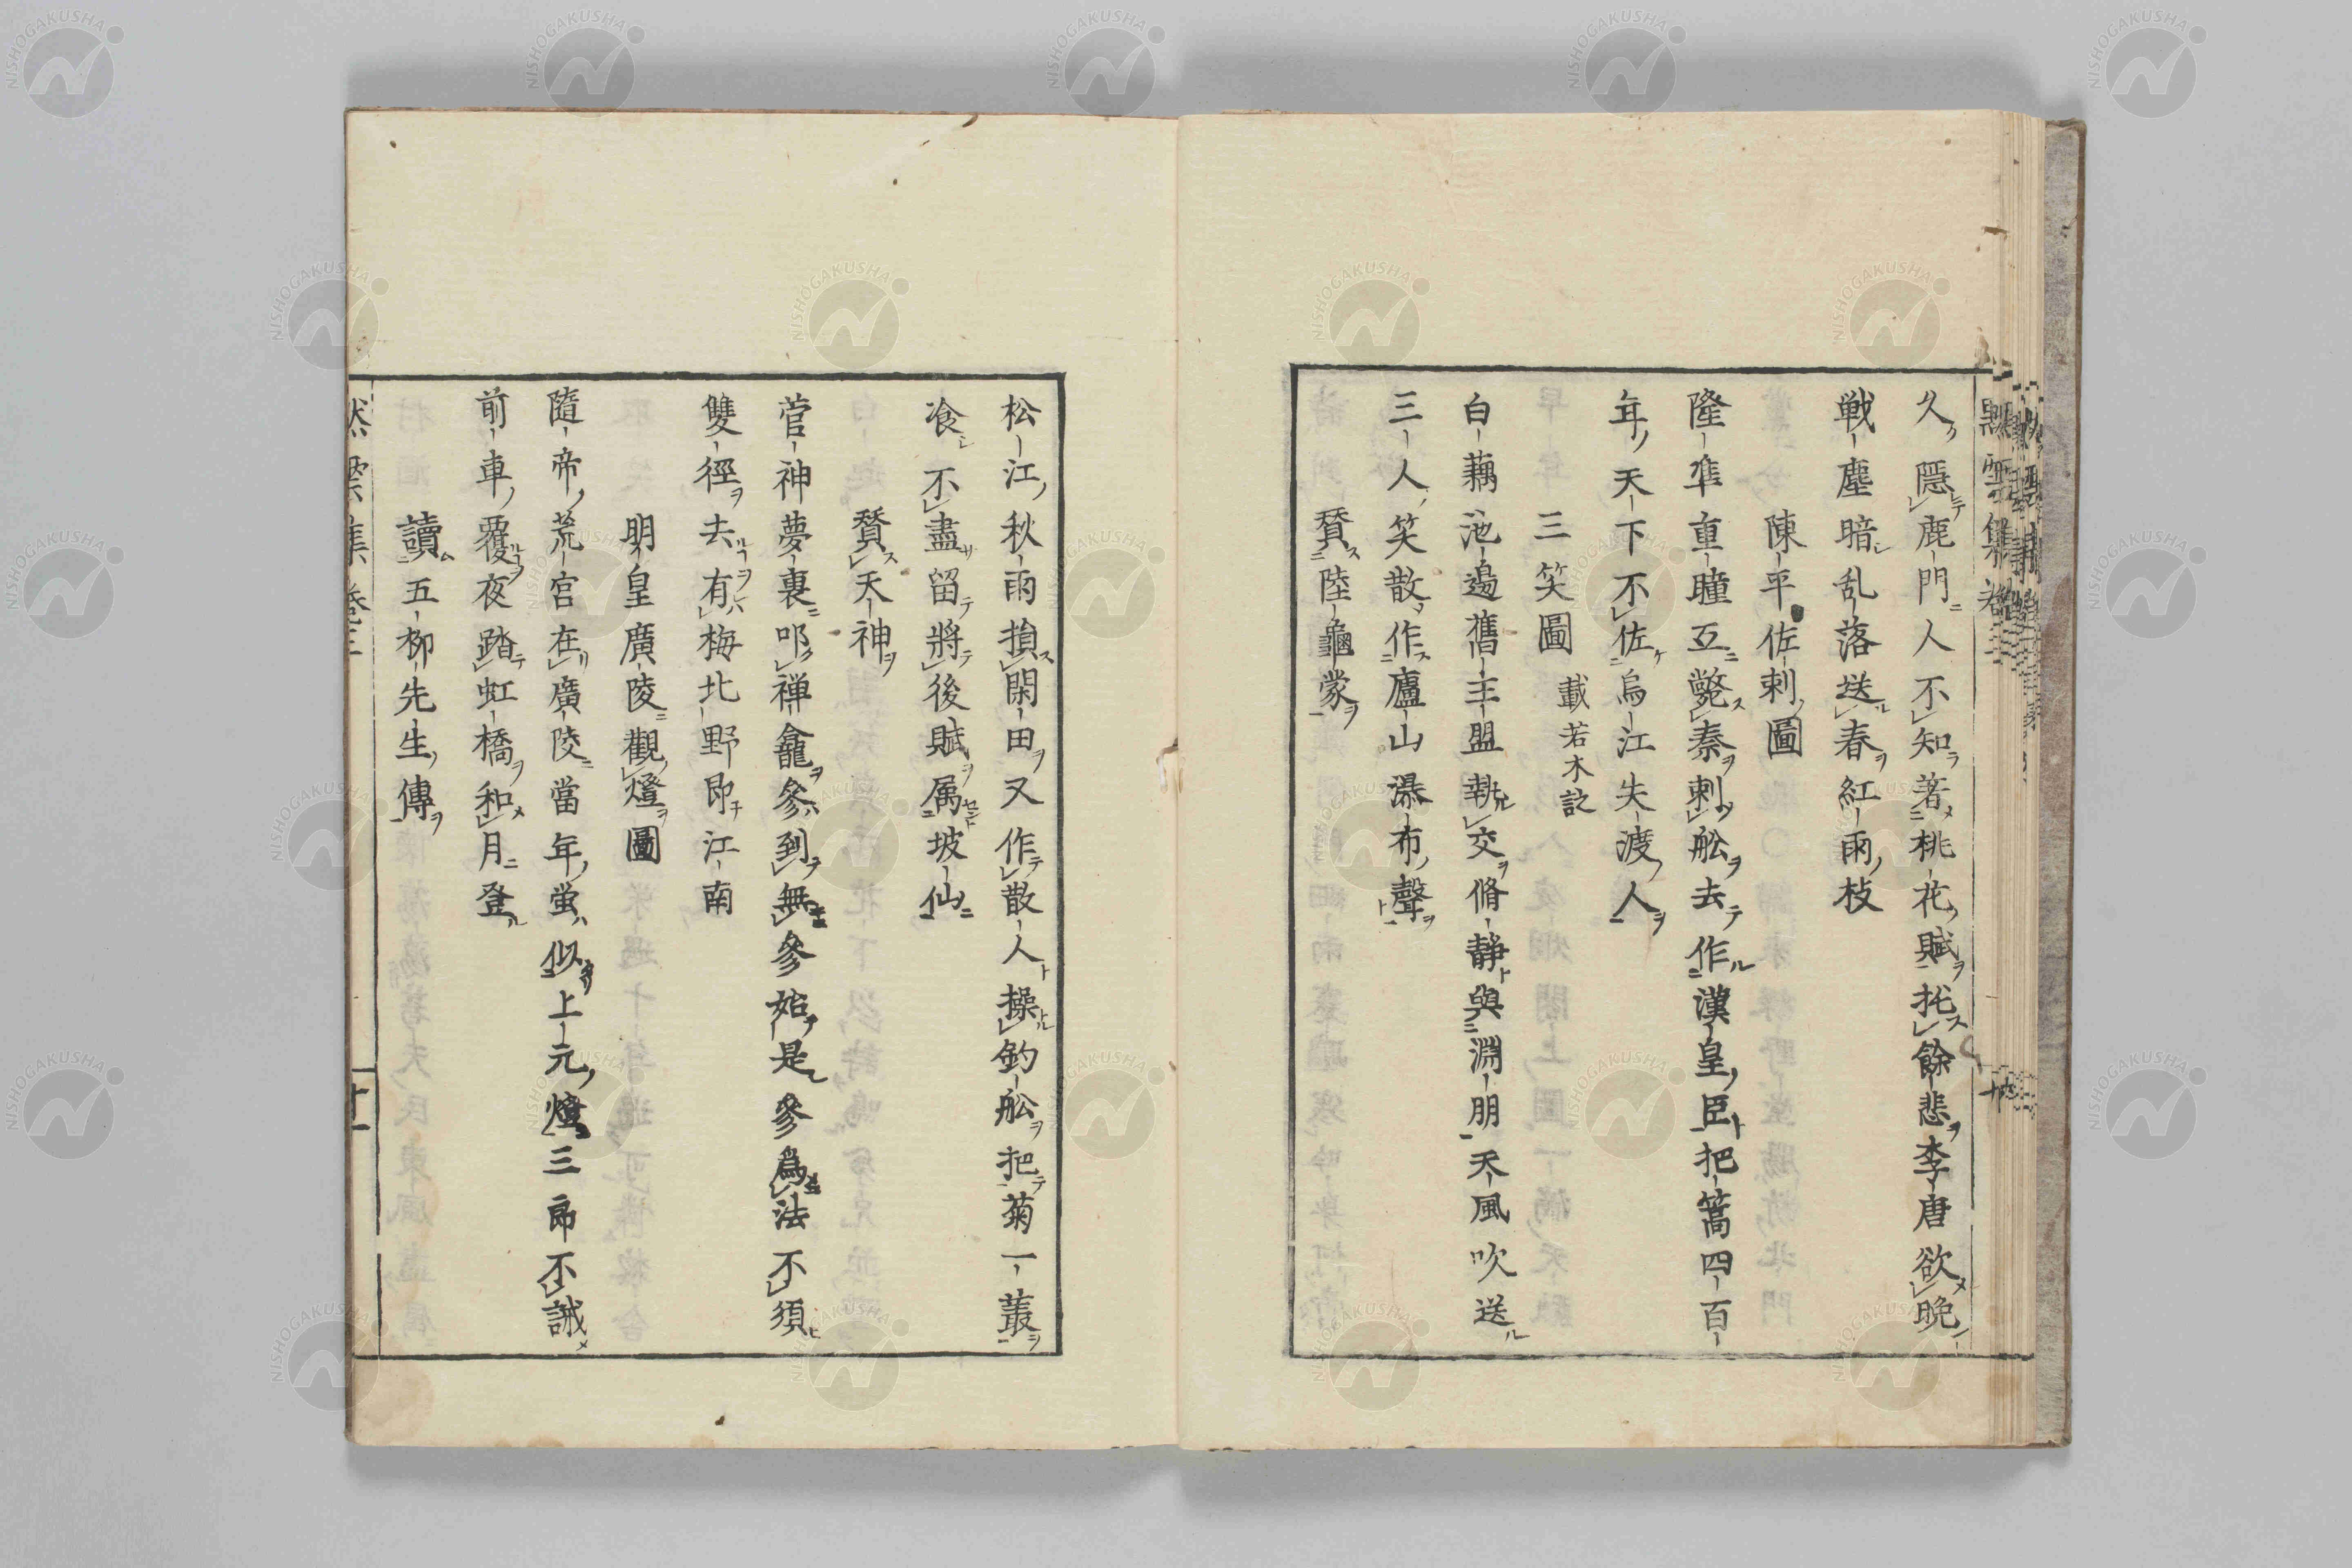 久隱鹿門人不知著桃花賦托餘悲李唐欲晩
戦塵暗乱落送春紅雨枝
陳平佐刺圖
隆準重瞳互斃秦刺舩去作漢皇臣把篙四百
年天下不佐烏江失渡人
三笑圖 載若木詩
白藕池邊舊主盟執交脩静與淵朋天風吹送
三人笑散作廬山瀑布聲
賛陸龜蒙
松江秋雨損閑田又作散人操釣舩把菊一叢
飡不盡留將後賦属坡仙
賛天神
菅神夢裏叩禅龕參到無參始是參為法不須
雙徑去有梅北野即江南
明皇廣陵觀燈圖
隨帝荒宮在廣陵當年蛍似上元燈三郎不誡
前車覆夜踏虹橋和月登
讀五柳先生傳